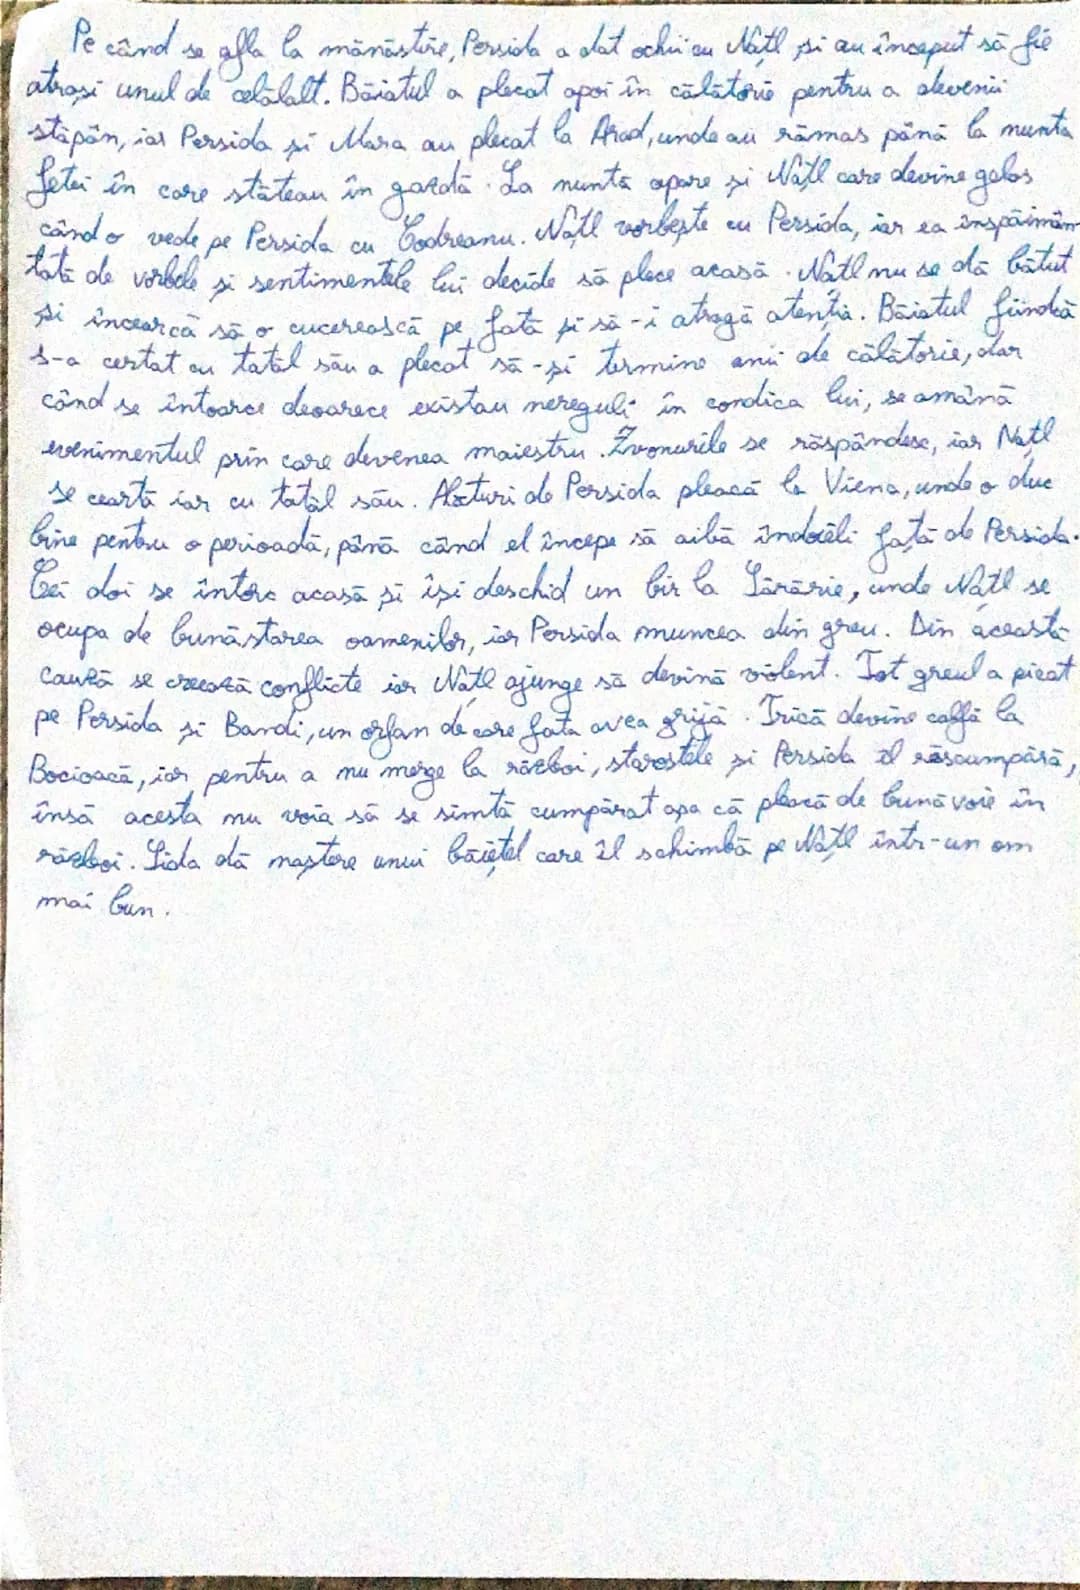 Pe când se afla la mănăstire, Persida a dat ochii cu Națl și au început să fie
atrași unul de celălalt. Băiatul a plecat apoi în călătorie pentru a devenii
stăpân, iar Persida și Mara au plecat la Arad, unde au rămas până la nunta
fetei în care stăteau în gazdă. La nuntă apare și Națl care devine gelos
când o vede pe Persida cu Codreanu. Națl vorbește cu Persida, iar ea înspăimân-
tată de vorbele și sentimentele lui decide să plece acasă. Națl nu se dă bătut
și încearcă să o cucerească pe fată și să-i atragă atenția. Băiatul fiindcă
s-a certat cu tatăl său a plecat să-și termine anii de călătorie, dar
când se întoarce deoarece existau nereguli în condica lui, se amână
evenimentul prin care devenea maiestru. Zvonurile se răspândesc, iar Națl
se ceartă iar cu tatăl său. Alături de Persida pleacă la Viena, unde o duc
bine pentru o perioadă, până când el începe să aibă îndoieli față de Persida.
Cei doi se întorc acasă și își deschid un bir la Sărărie, unde Națl se
ocupa de bunăstarea oamenilor, iar Persida muncea din greu. Din această
cauză se crează conflicte iar Națl ajunge să devină violent. Tot greul a picat
pe Persida și Bandi, un orfan de care fata avea grijă. Trică devine calfă la
Bocioacă, iar pentru a nu merge la război, starostele și Persida îl răscumpără,
însă acesta nu voia să se simtă cumpărat așa că pleacă de bunăvoie în
război. Sida dă naștere unui băiețel care îl schimbă pe Națl într-un om
mai bun.